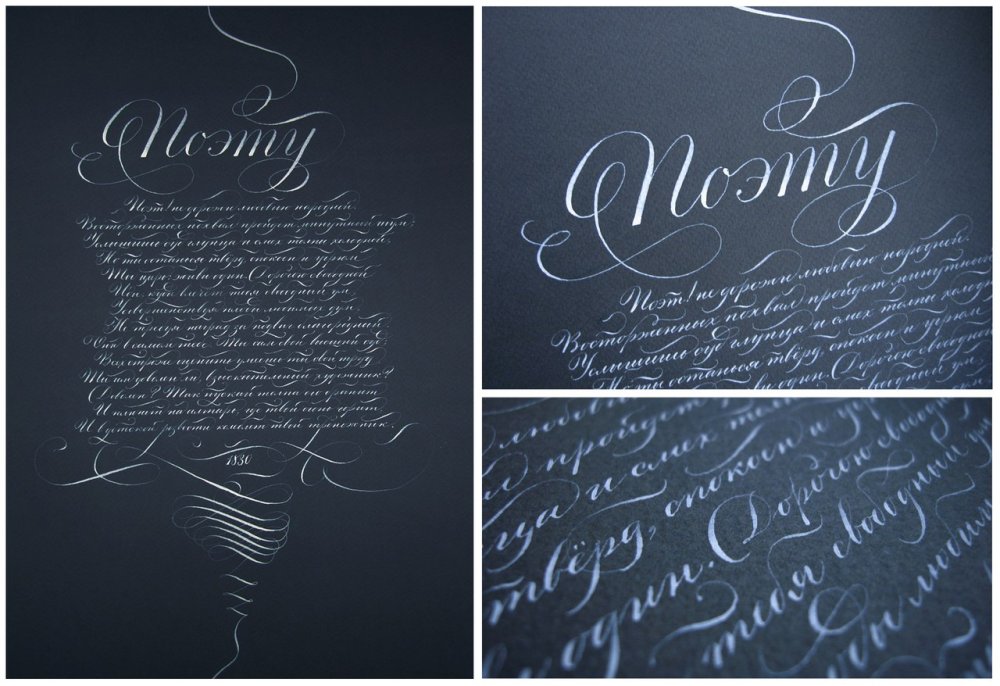 Поэту
Поэт! не дорожи любовию народной.
Восторженных похвал пройдет минутный шум;
Услышишь суд глупца и смех толпы холодной,
Но ты останься твёрд, спокоен и угрюм.
Ты царь: живи один. Дорогою свободной
Иди, куда влечет тебя свободный ум,
Усовершенствуя плоды любимых дум,
Не требуя наград за подвиг благородный.
Они в самом тебе. Ты сам свой высший суд;
Всех строже оценить умеешь ты свой труд.
Ты им доволен ли, взыскательный художник?
Доволен? Так пускай толпа его бранит
И плюет на алтарь, где твой огонь горит,
И в детской резвости колеблет твой треножник.
1830
Поэту
Поэт! не дорожи любовию народной.
Восторженных похвал пройдет минутный
Услышишь суд глупца и смех толпы холод
Но ты останься твёрд, спокоен и угрюм.
один. Дорогою свобод
пройдет
и смех
твёрд, спокоен и
один. Дорогою свобод
тебя свободный